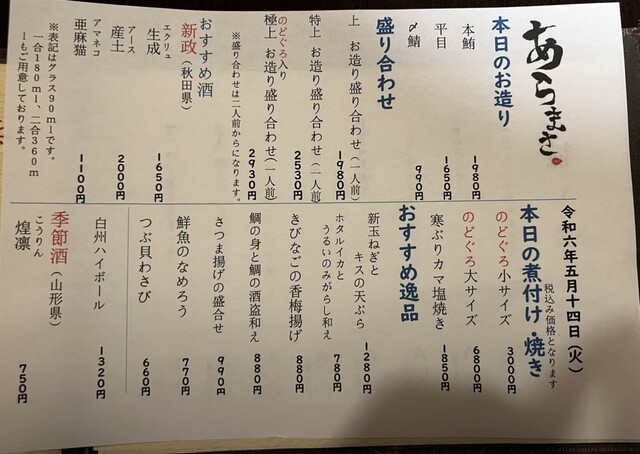 あらまさ
本日のお造り
本鮪 1980円
平目 1650円
〆鯖 990円
盛り合わせ
上 お造り盛り合わせ(一人前) 1980円
特上 お造り盛り合わせ(一人前) 2530円
のどぐろ入り
極上 お造り盛り合わせ(一人前) 2930円
※盛り合わせは二人前からになります。
おすすめ酒
新政(秋田県)
エクリュ
生成 1650円
アース
産土 2000円
アマネコ
亜麻猫 1100円
※表記はグラス90mlです。
一合180ml、二合360m
lもご用意しております。
令和六年五月十四日(火)
税込み価格となります
本日の煮付け・焼き
のどぐろ小サイズ 3000円
のどぐろ大サイズ 6800円
寒ぶりカマ塩焼き 1850円
おすすめ逸品
新玉ねぎと
キスの天ぷら 1280円
ホタルイカと
うるいのみがらし和え 780円
きびなごの香梅揚げ 880円
鯛の身と鯛の酒盗和え 880円
さつま揚げの盛合せ 990円
鮮魚のなめろう 770円
つぶ貝わさび 660円
白州ハイボール 1320円
季節酒(山形県)
こうりん
煌凛 750円